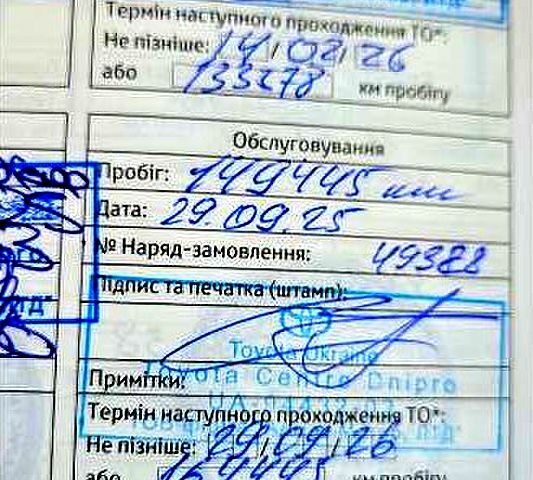 Термін наступного проходження ТО*:
Не пізніше: 14/02/26
або 133278 км пробігу
Обслуговування
Пробіг: 149445 км
Дата: 29.09.25
№ Наряд-замовлення: 49388
Підпис та печатка (штамп):
Toyota Ukraine
Toyota Centre Dnipro
Примітки:
Термін наступного проходження ТО*:
Не пізніше: 29/09/26
або 164445 км пробігу